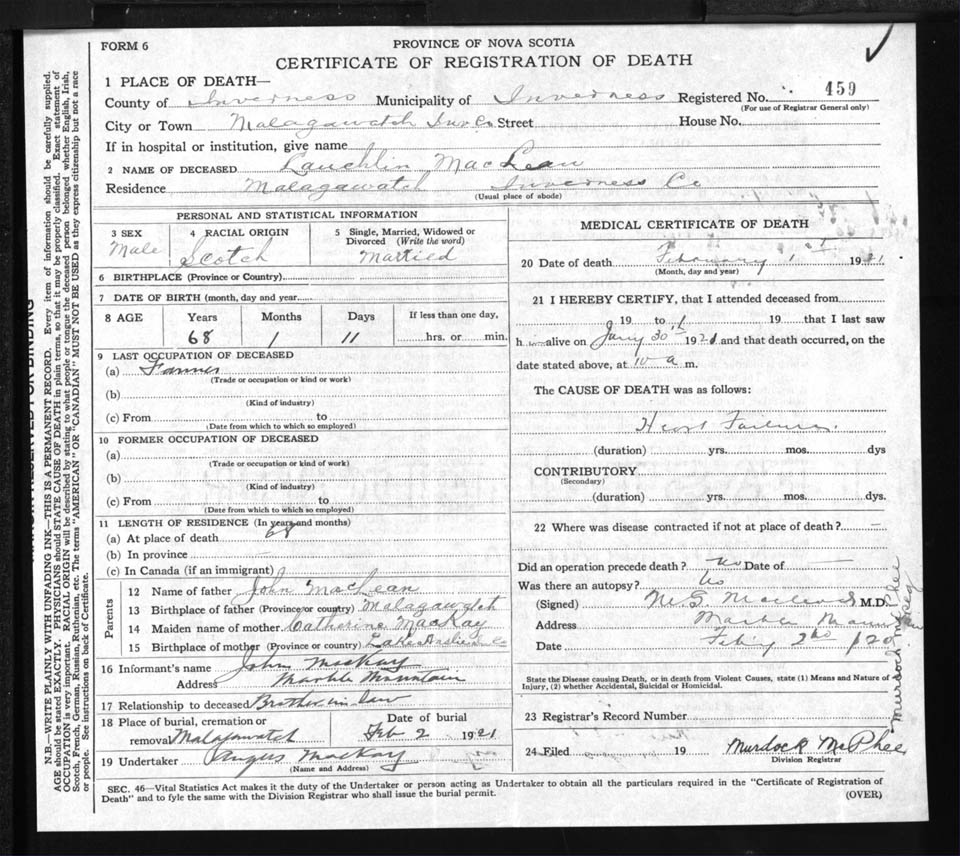 FORM 6
PROVINCE OF NOVA SCOTIA
CERTIFICATE OF REGISTRATION OF DEATH
1 PLACE OF DEATH—
County of Inverness Municipality of Inverness Registered No. 459
(For use of Registrar General only)
City or Town Malagawatch Inv Co Street House No.
If in hospital or institution, give name
2 NAME OF DECEASED Lauchlin MacLean
Residence Malagawatch Inverness Co
(Usual place of abode)
PERSONAL AND STATISTICAL INFORMATION
3 SEX 4 RACIAL ORIGIN 5 Single, Married, Widowed or Divorced (Write the word)
Male Scotch Married
6 BIRTHPLACE (Province or Country)
7 DATE OF BIRTH (month, day and year)
8 AGE Years Months Days If less than one day,
68 1 11 hrs. or min.
9 LAST OCCUPATION OF DECEASED
(a) Farmer
(Trade or occupation or kind or work)
(b)
(Kind of industry)
(c) From to
(Date from which to which so employed)
10 FORMER OCCUPATION OF DECEASED
(a)
(Trade or occupation or kind of work)
(b)
(Kind of industry)
(c) From to
(Date from which to which so employed)
11 LENGTH OF RESIDENCE (In years and months)
(a) At place of death 68
(b) In province
(c) In Canada (if an immigrant)
Parents
12 Name of father John MacLean
13 Birthplace of father (Province or country) Malagawatch
14 Maiden name of mother Catherine MacKay
15 Birthplace of mother (Province or country) Lake
16 Informant's name John MacKay
Address Marble Mountain
17 Relationship to deceased Brother in law
18 Place of burial, cremation or removal Malagawatch Date of burial Feb 2 1921
19 Undertaker Angus MacKay
(Name and Address)
MEDICAL CERTIFICATE OF DEATH
20 Date of death February 1st 1921
(Month, day and year)
21 I HEREBY CERTIFY, that I attended deceased from
19 to 19 that I last saw
h alive on Jany 30th 1921 and that death occurred, on the
date stated above, at 10 a m.
The CAUSE OF DEATH was as follows:
Heart Failure
(duration) yrs. mos. dys
CONTRIBUTORY
(Secondary)
(duration) yrs. mos. dys.
22 Where was disease contracted if not at place of death?
Did an operation precede death? no Date of
Was there an autopsy? No
(Signed) M.D.
Address Marble
Date
State the Disease causing Death, or in death from Violent Causes, state (1) Means and Nature of
Injury, (2) whether Accidental, Suicidal or Homicidal.
23 Registrar's Record Number
24 Filed 19 Murdock McPhee
Division Registrar
Murdoch McPhee
SEC. 46—Vital Statistics Act makes it the duty of the Undertaker or person acting as Undertaker to obtain all the particulars required in the "Certificate of Registration of
Death" and to fyle the same with the Division Registrar who shall issue the burial permit.
(OVER)
N.B.—WRITE PLAINLY WITH UNFADING INK—THIS IS A PERMANENT RECORD. Every item of information should be carefully supplied.
AGE should be stated EXACTLY. PHYSICIANS should STATE CAUSE OF DEATH in plain terms, so that it may be properly classified. Exact statement of
OCCUPATION is very important. RACIAL ORIGIN will be described by stating to what people or tongue the deceased person belonged whether English, Irish,
Scotch, French, German, Russian, Ruthenian, etc. The terms "AMERICAN" OR "CANADIAN" MUST NOT BE USED as they express citizenship but not a race
or people. See instructions on back of Certificate.